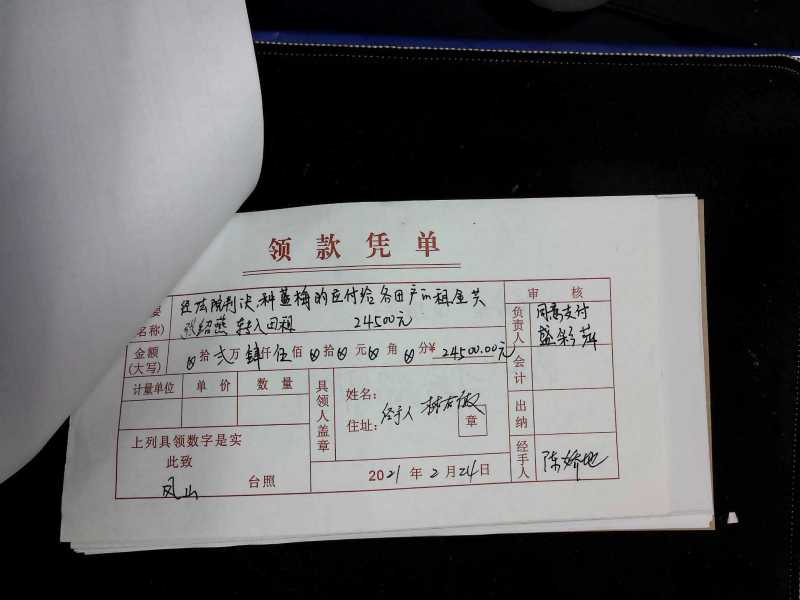 领款凭单
要
(名称)
经法院判决,种蓝梅的应付给各田户的租金共
张绍燕 转入田租 24500元
审核
负责人
同意支付
金额
(大写)
拾贰万肆仟伍佰 拾 元 角 分¥ 24500.00元
会计
计量单位 单价 数量
具领人盖章
姓名:
住址:
经手人
章
出纳
上列具领数字是实
此致
凤山 台照
2021年2月24日
经手人
陈娇地